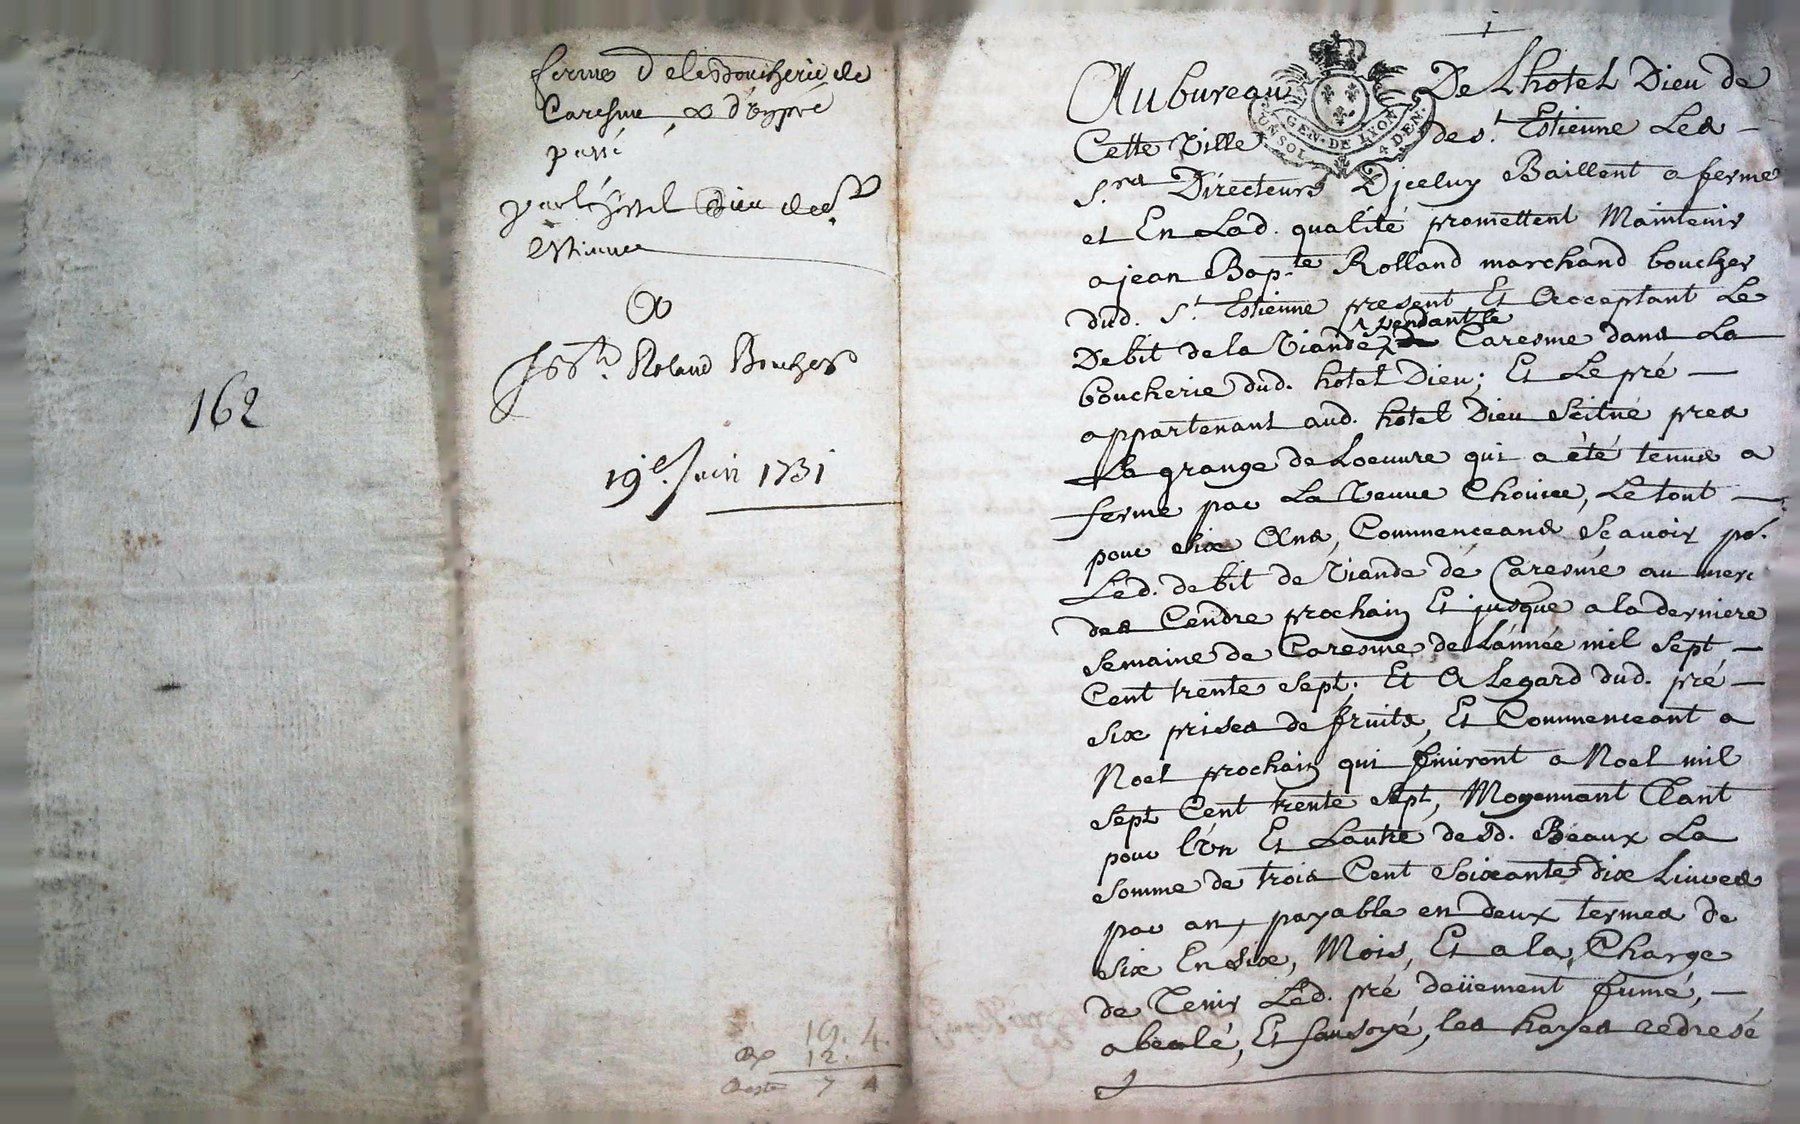 162
ferme de la Boucherie de
Caresme, & du pré
passé
par l'hostel Dieu de St
estienne
a
Jean Bte Roland Boucher
19e Juin 1731
19. 4.
12.
Reste 7 4
1
Au bureau De Lhotel Dieu de
GEN. DE LYON
UN SOL 4 DEN.
Cette Ville de St Estienne Les
Srs Directeurs Djceluy Baillent a ferme
et En Lad. qualité promettent Maintenir
a jean Bap.te Rolland marchand boucher
dud. St Estienne present Et Acceptant Le
pendant le
Debit de la Viande Caresme dans La
boucherie dud. hotel Dieu; Et Le pré
appartenant aud. hotel Dieu Scitué pres
La grange de Loeuvre qui a été tenue a
ferme par La Veuve Chouice, Le tout
pour Six Ans, Commenceans Scavoir pr.
Led. debit de Viande de Caresme au merc
des Cendre prochain Et jusque a la derniere
Semaine de Caresme de L'année mil Sept
Cent trente Sept; Et A Legard dud. pré
Six prises de fruits, Et Commenceant a
Noel prochain qui finiront a Noel mil
Sept Cent trente Sept, Moyennant Tant
pour l'Vn Et Lautre desd. Beaux La
Somme de trois Cent Soixante dix Livres
par an, payable en deux termes de
Six En Six, Mois, Et a la Charge
de Tenir Led. pré deüement fumé,
abealé, Et fausoyé, les hayes redresé